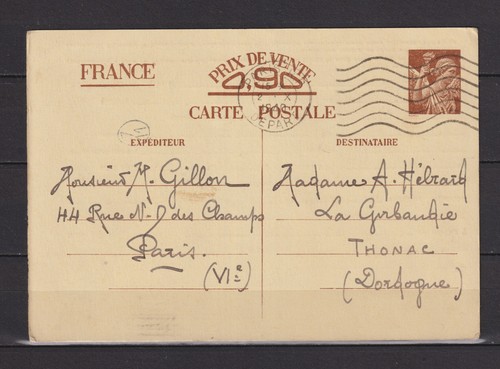 FRANCE
PRIX DE VENTE
0,90
CARTE POSTALE
DÉPART
EXPÉDITEUR
DESTINATAIRE
Monsieur M. Gillon
44 Rue N.-D des Champs
Paris.
(VIe)
Madame A. Hébrard
La Gerbaudie
THONAC
(Dordogne)